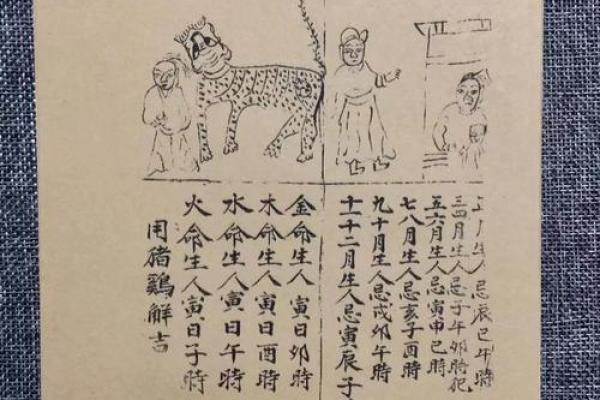 月生人忌辰巳午時
三四月生人忌子午卯時犯
五六月生人忌寅申巳時
七八月生人忌亥子酉時
九十月生人忌戌卯午時
十一十二月生人忌寅辰子
金命生人寅日卯時
木命生人寅日酉時
水命生人寅日午時
火命生人寅日子時
用猪鷄解吉